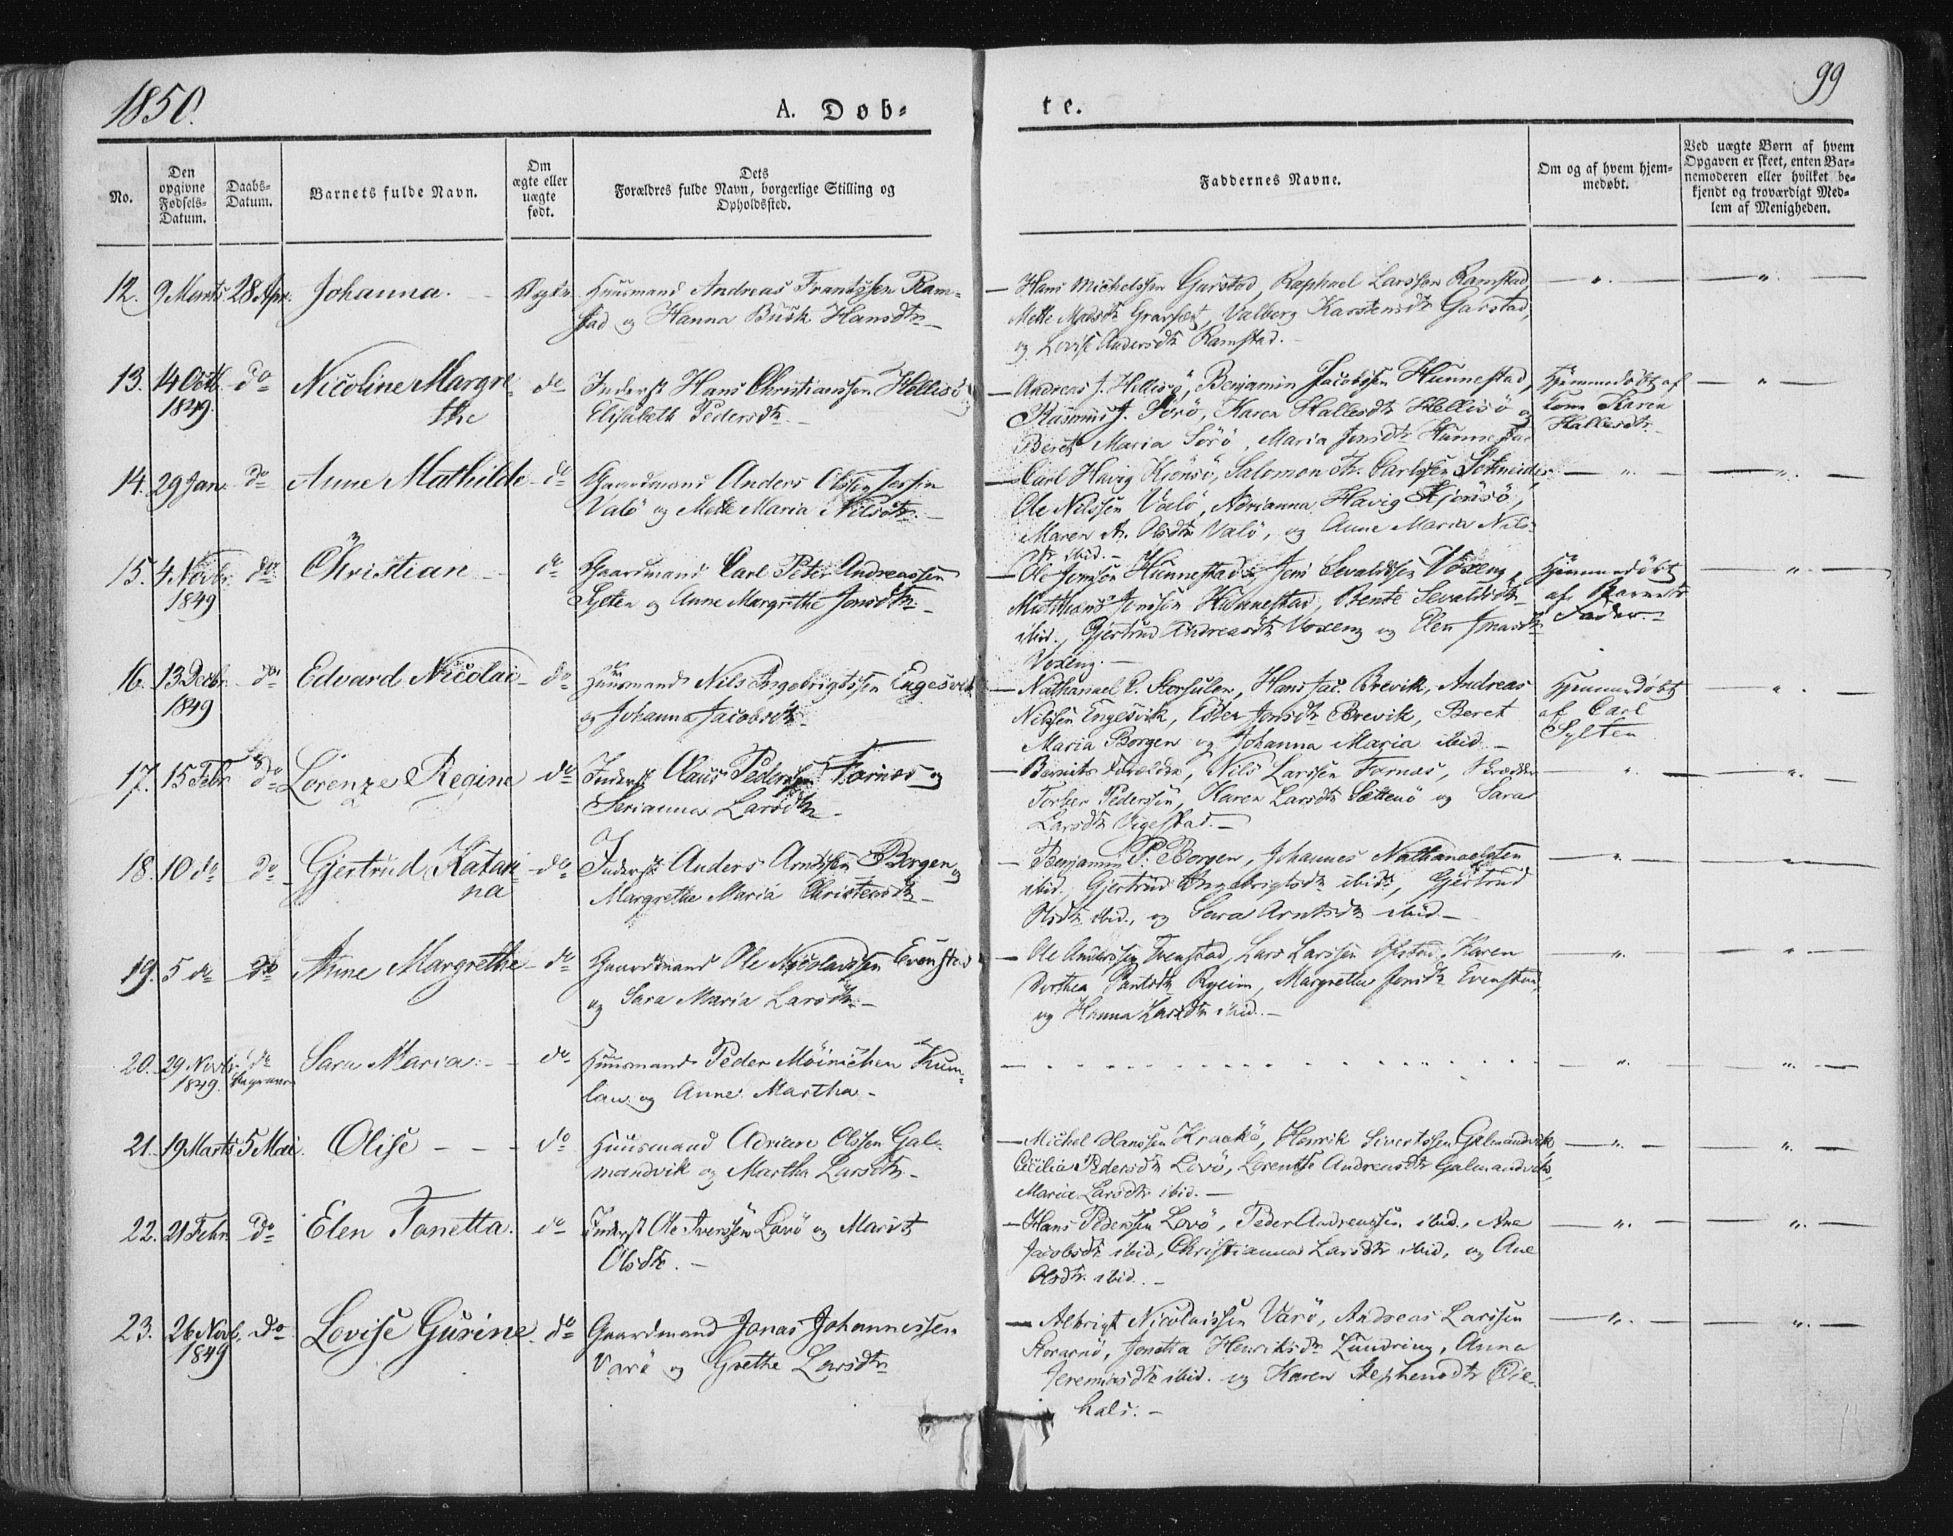 1850.
A. Døb-
te.
99
No.
Den opgivne Fødsels-Datum.
Daabs-Datum.
Barnets fulde Navn.
Om ægte eller uægte født.
Dets Forældres fulde Navn, borgerlige Stilling og Opholdssted.
Faddernes Navne.
Om og af hvem hjem-medøbt.
Ved uægte Børn af hvem Opgaven er skeet, enten Bar-nemoderen eller hvilket be-kjendt og troværdigt Med-lem af Menigheden.
12. 9 Marts 28 Apr. Johanna. Ægte. Huusmand Andreas Frantzsen Ram-
stad og Hanna Busk Hansdtr
Hans Michelssen Garstad, Raphael Larssen Ramstad,
Mette Gravset, Valberg Karstensdtr Garstad,
og Lovise Andersdtr Ramstad.
13. 14 Octb. 1849. do Nicoline Margre-
the do Inderst Hans Christianssen Hellisö og
Elisabeth Pedersdtr.
Andreas J. Hellisö, Benjamin Jacobssen Hunnestad,
Rasmus J. Sörö, Karen Hallesdtr Hellisö og
Beret Maria Sörö, Maria Jensdtr Hunnestad
Hjemmedøbt af
Karen
Hallesdtr.
14. 29 Jan. do Anne Mathilde do Gaardmand Anders Olssen
Valö og Mette Maria Nilsdtr.
Carl Havig Kjönsö, Salomon Th. Carlssen Schneider,
Ole Nilssen Valö, Adrianna Havig Kjönsö,
Maren A. Olsdtr Valö, og Anne Maria Nils-
dtr ibid.
15. 4 Novbr. 1849 do Christian do Gaardmand Carl Peter Andreassen
Sylten og Anne Margrethe Jonsdtr.
Ole Jonssen Hunnestad, Jens Sevaldssen Voxeng,
Matthias Jonssen Hunnestad, Bente Sevaldsdtr
ibid., Gjertrud Andreasdtr Voxeng og Elen Jonasdtr
Voxeng.
Hjemmedøbt
af Barnets
Fader.
16. 13 Decbr. 1849 do Edvard Nicolai do Huusmand Nils Ingebrigtssen Engesvik
og Johanna Jacobsdtr.
Nathanael P. Storsulen, Hans Jac. Brevik, Andreas
Nilssen Engesvik, Ester Jonsdtr Brevik, Beret
Maria Borgen og Johanna Maria ibid.
Hjemmedøbt
af Carl
Sylten
17. 15 Febr do Lorenze Regine do Inderst Claus Pederssen Fornes og
Serianna Larsdtr.
Barnets Forældre, Nils Larssen Fornes,
Torber Pederssen, Karen Larsdtr Settenö og Sara
Larsdtr Vigestad.
18. 10 do do Gjertrud Katari-
na do Inderst Anders Arntssen Borgen og
Margrethe Maria Christensdtr
Benjamin P. Borgen, Johannes Nathanaelssen
ibid, Gjertrud Ingebrigtsdtr ibid, Gjertrud
Olsdtr ibid., og Sara Arntsdtr ibid.
19. 5 do do Anne Margrethe do Gaardmand Ole Nicolaissen Evenstad
og Sara Maria Larsdtr.
Ole Anderssen Evenstad, Lars Larssen Ofstad, Karen
Dorthea Ryeim, Margrethe Jonsdtr Evenstad,
og Hanna Larsdtr ibid.
20. 29 Novbr. 1849 do Sara Maria. do Huusmand Peder Möinichen Kum-
lau og Anne Martha.
21. 19 Marts 5 Mai. Olise do Huusmand Adrian Olssen Gal-
mandvik og Martha Larsdtr.
Michel Hanssen Kraakö, Henrik Sivertssen Galmandvik,
Cecilia Pedersdtr Lovö, Lorentse Andreasdtr Galmandvik,
Maria Larsdtr ibid.
22. 21 Febr. do Elen Tonetta. do Inderst Ole Iverssen Lovö og Marit
Olsdtr.
Hans Pederssen Lovö, Peder Andreassen ibid., Ane
Jacobsdtr ibid, Christianna Larsdtr ibid, og Ane
Olsdtr ibid.
23. 26 Novb. 1849 do Lovise Gurine. do Gaardmand Jonas Johannessen
Varö og Grethe Larsdtr
Albrigt Nicolaissen Varö, Andreas Larssen
Storarnö, Jonetta Henriksdtr Lundring, Anna
Jeremiasdtr ibid. og Karen Stephensdtr Öie-
hals.